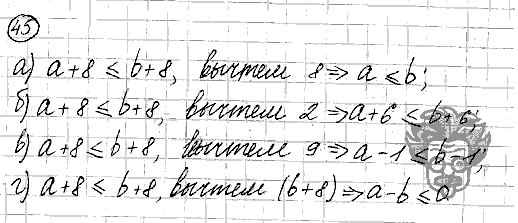 45
а) a+8 ≤ b+8, вычтем 8 ⇒ a ≤ b;
б) a+8 ≤ b+8, вычтем 2 ⇒ a+6 ≤ b+6;
в) a+8 ≤ b+8, вычтем 9 ⇒ a-1 ≤ b-1;
г) a+8 ≤ b+8, вычтем (b+8) ⇒ a-b ≤ 0